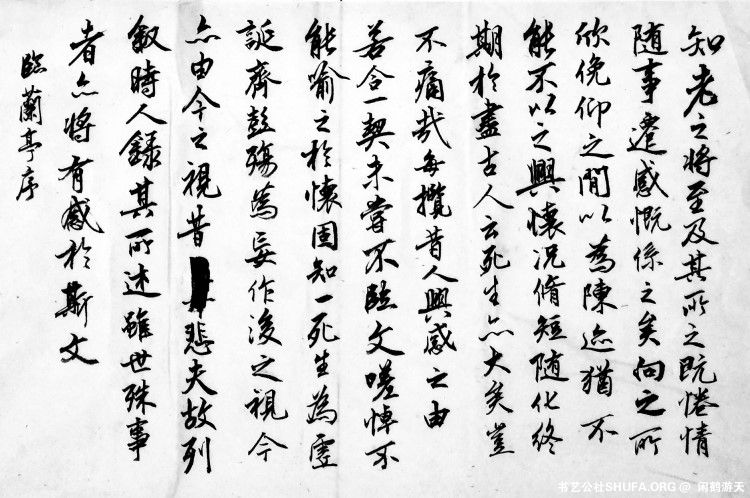 知老之將至及其所之既惓情
随事遷感慨係之矣向之所
欣俛仰之閒以為陳迹猶不
能不以之興懷况脩短随化終
期於盡古人云死生亦大矣豈
不痛哉每攬昔人興感之由
若合一契未嘗不臨文嗟悼不
能喻之於懷固知一死生為虛
誕齊彭殤為妄作後之視今
亦由今之視昔悲夫故列
叙時人錄其所述雖世殊事
者亦將有感於斯文
臨蘭亭序
书艺公社SHUFA.ORG @ 闲鹤游天